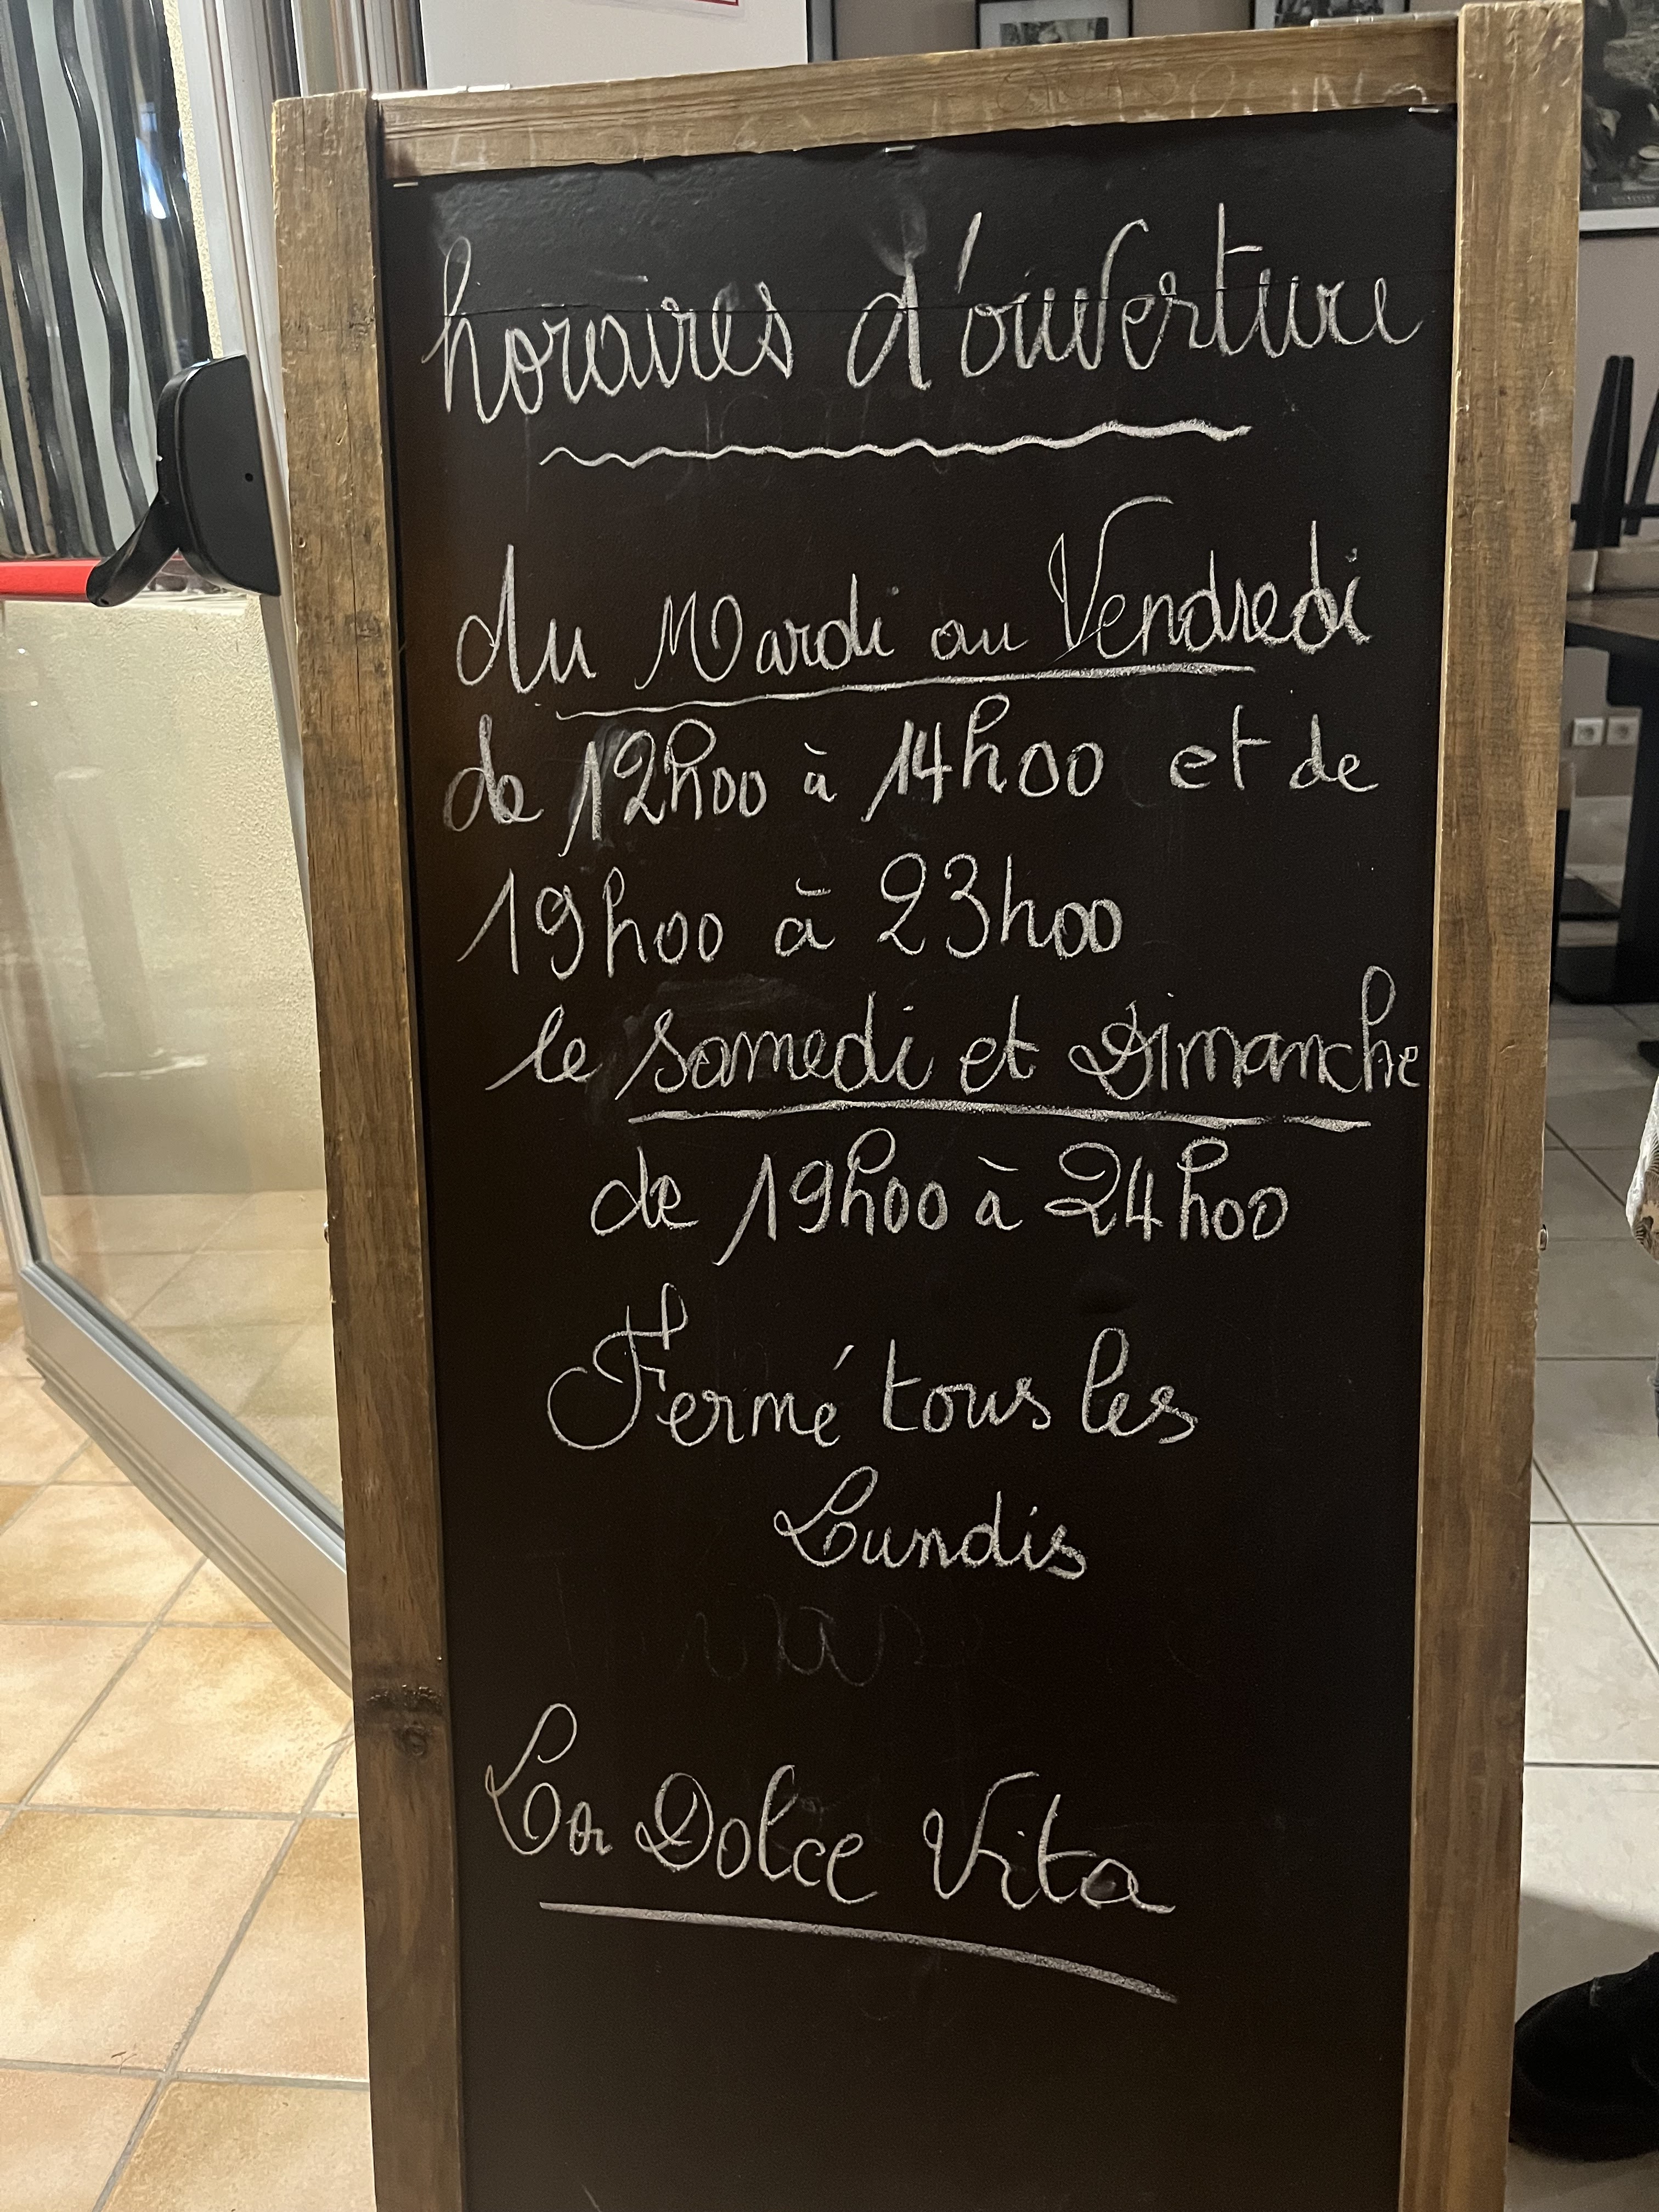 horaires d'ouverture
du Mardi au Vendredi
de 12h00 à 14h00 et de
19h00 à 23h00
le samedi et Dimanche
de 19h00 à 24h00
Fermé tous les
Lundis
La Dolce Vita